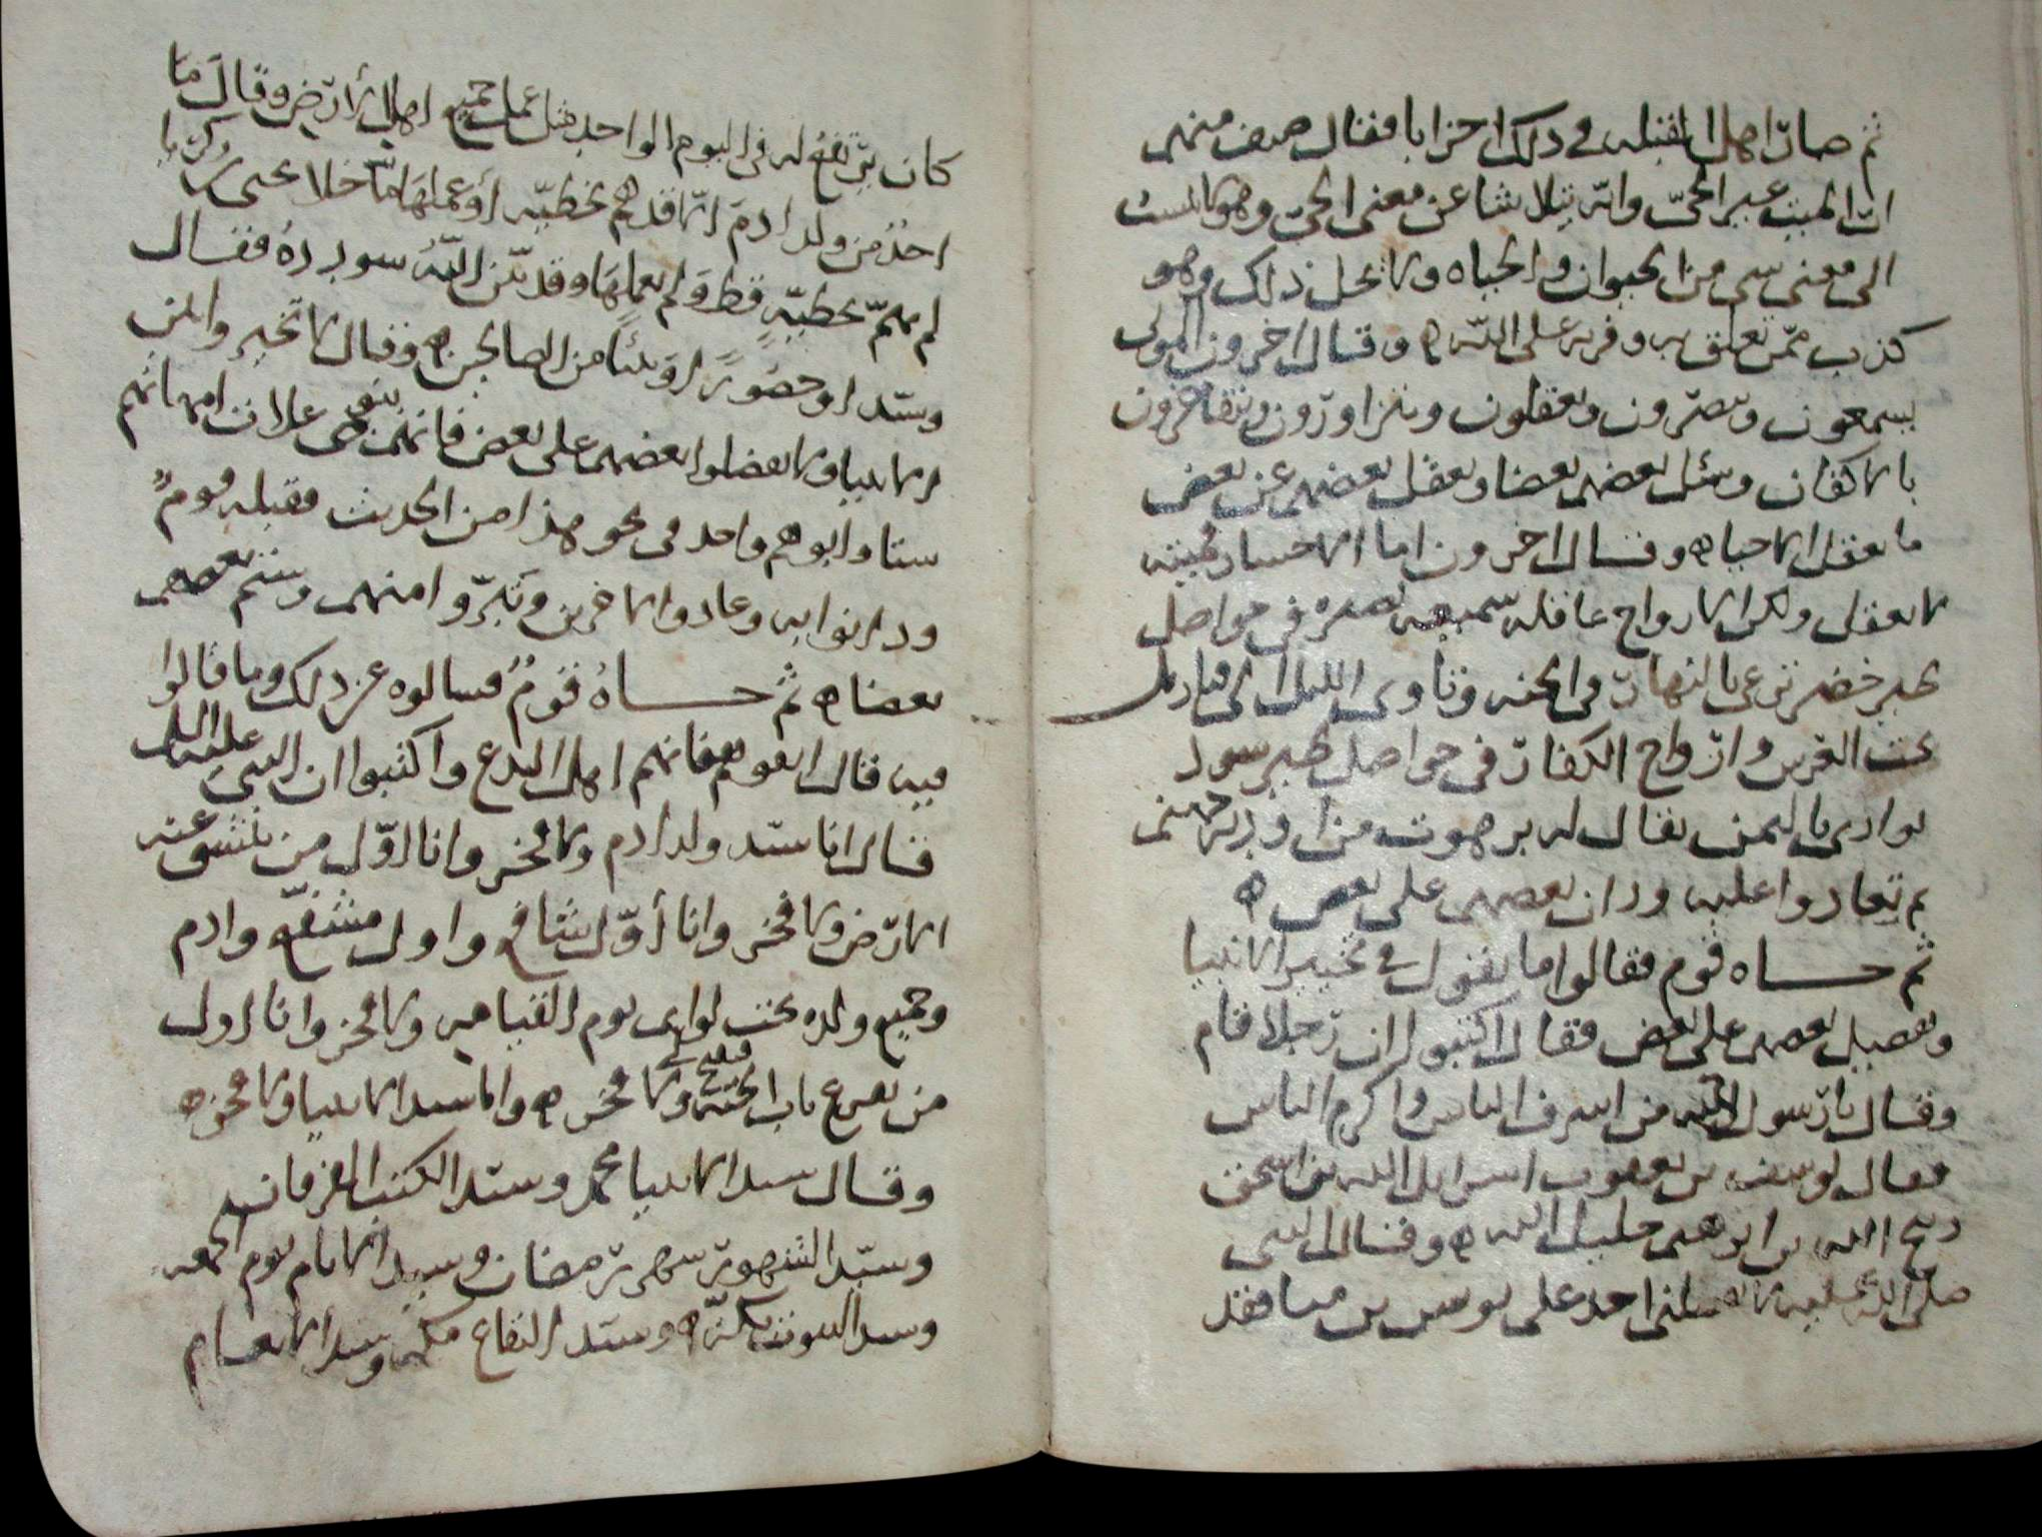 ثم صار اهل القبله في ذلك احزابا فقال صنف منهم
ان الميت غير الحي وانه يتلاشا عن معنى الحي وهو كالمست
الى معنى سى من الحيوان والحياه ولا نحل ذلك وهو
كذب ممن تعلق به وفريه على الله وقال اخرون الموتى
يسمعون ويبصرون ويعقلون ويتزاورون ويتفاخرون
بالاكفان ويسئل بعضهم بعضا ويعقل بعضهم عن بعض
ما يعقل الاحياه وقال اخرون اما الاجساد فميته
لا تعقل ولكن الارواح عاقله سميعه بصيره في حواصل
طير خضر ترعى بالنهار في الجنه وتاوى الليل الى قناديل
تحت العرش وارواح الكفار في حواصل طير سود
بوادى باليمن يقال له برهوت من اوديه جهنم
ثم تعادوا عليه وزان بعضهم على بعض
ثم جاه قوم فقالوا ما تقول في تخيير الانبيا
وتفضيل بعضهم على بعض فقال اكتبوا ان رجلا قام
وقال يا رسول الله من اشرف الناس واكرم الناس
فقال يوسف بن يعقوب اسرايل الله بن اسحق
ذبيح الله بن ابرهيم خليل الله وقال النبي
صلى الله عليه لا احد على يونس بن متا فقد
كان يرتفع له في اليوم الواحد مثل عمل جميع اهل الارض وقال ما
احد من ولد ادم الا قد هم بخطيه او عملها ما خلا يحيى بن زكريا
لم يهم بخطيه قط ولم يعملها وقد بين الله سودده فقال
وسيدا وحصورا ونبيا من الصالحين وقال لا تخير وابين
الانبيا ولا تفضلوا بعضهم على بعض فانهم بنو علات امهاتهم
ستا وابوهم واحد في نحو هذا من الحديث فقبله قوم
ودانوا به وعادوا الاخرين وتبروا منهم وشتم بعضهم
بعضا ثم جاه قوم فسالوه عن ذلك وما قالوا
فيه قال العوهم فانهم اهل البدع واكتبوا ان النبي عليه السلم
قال انا سيد ولد ادم ولا فخر وانا اول من تنشق عنه
الارض ولا فخر وانا أول شافع واول مشفع وادم
وجميع ولده تحت لوائى يوم القيامه ولا فخر وانا اول
من يقرع باب الجنه فيفتح لي ولا فخر وانا سيد الانبيا ولا فخر
وقال سيد الانبيا محمد وسيد الكتب الفرقان
وسيد الشهور شهر رمضان وسيد الايام يوم الجمعه
وسيد البيوت بكه وسيد البقاع مكه وسيد الانعام